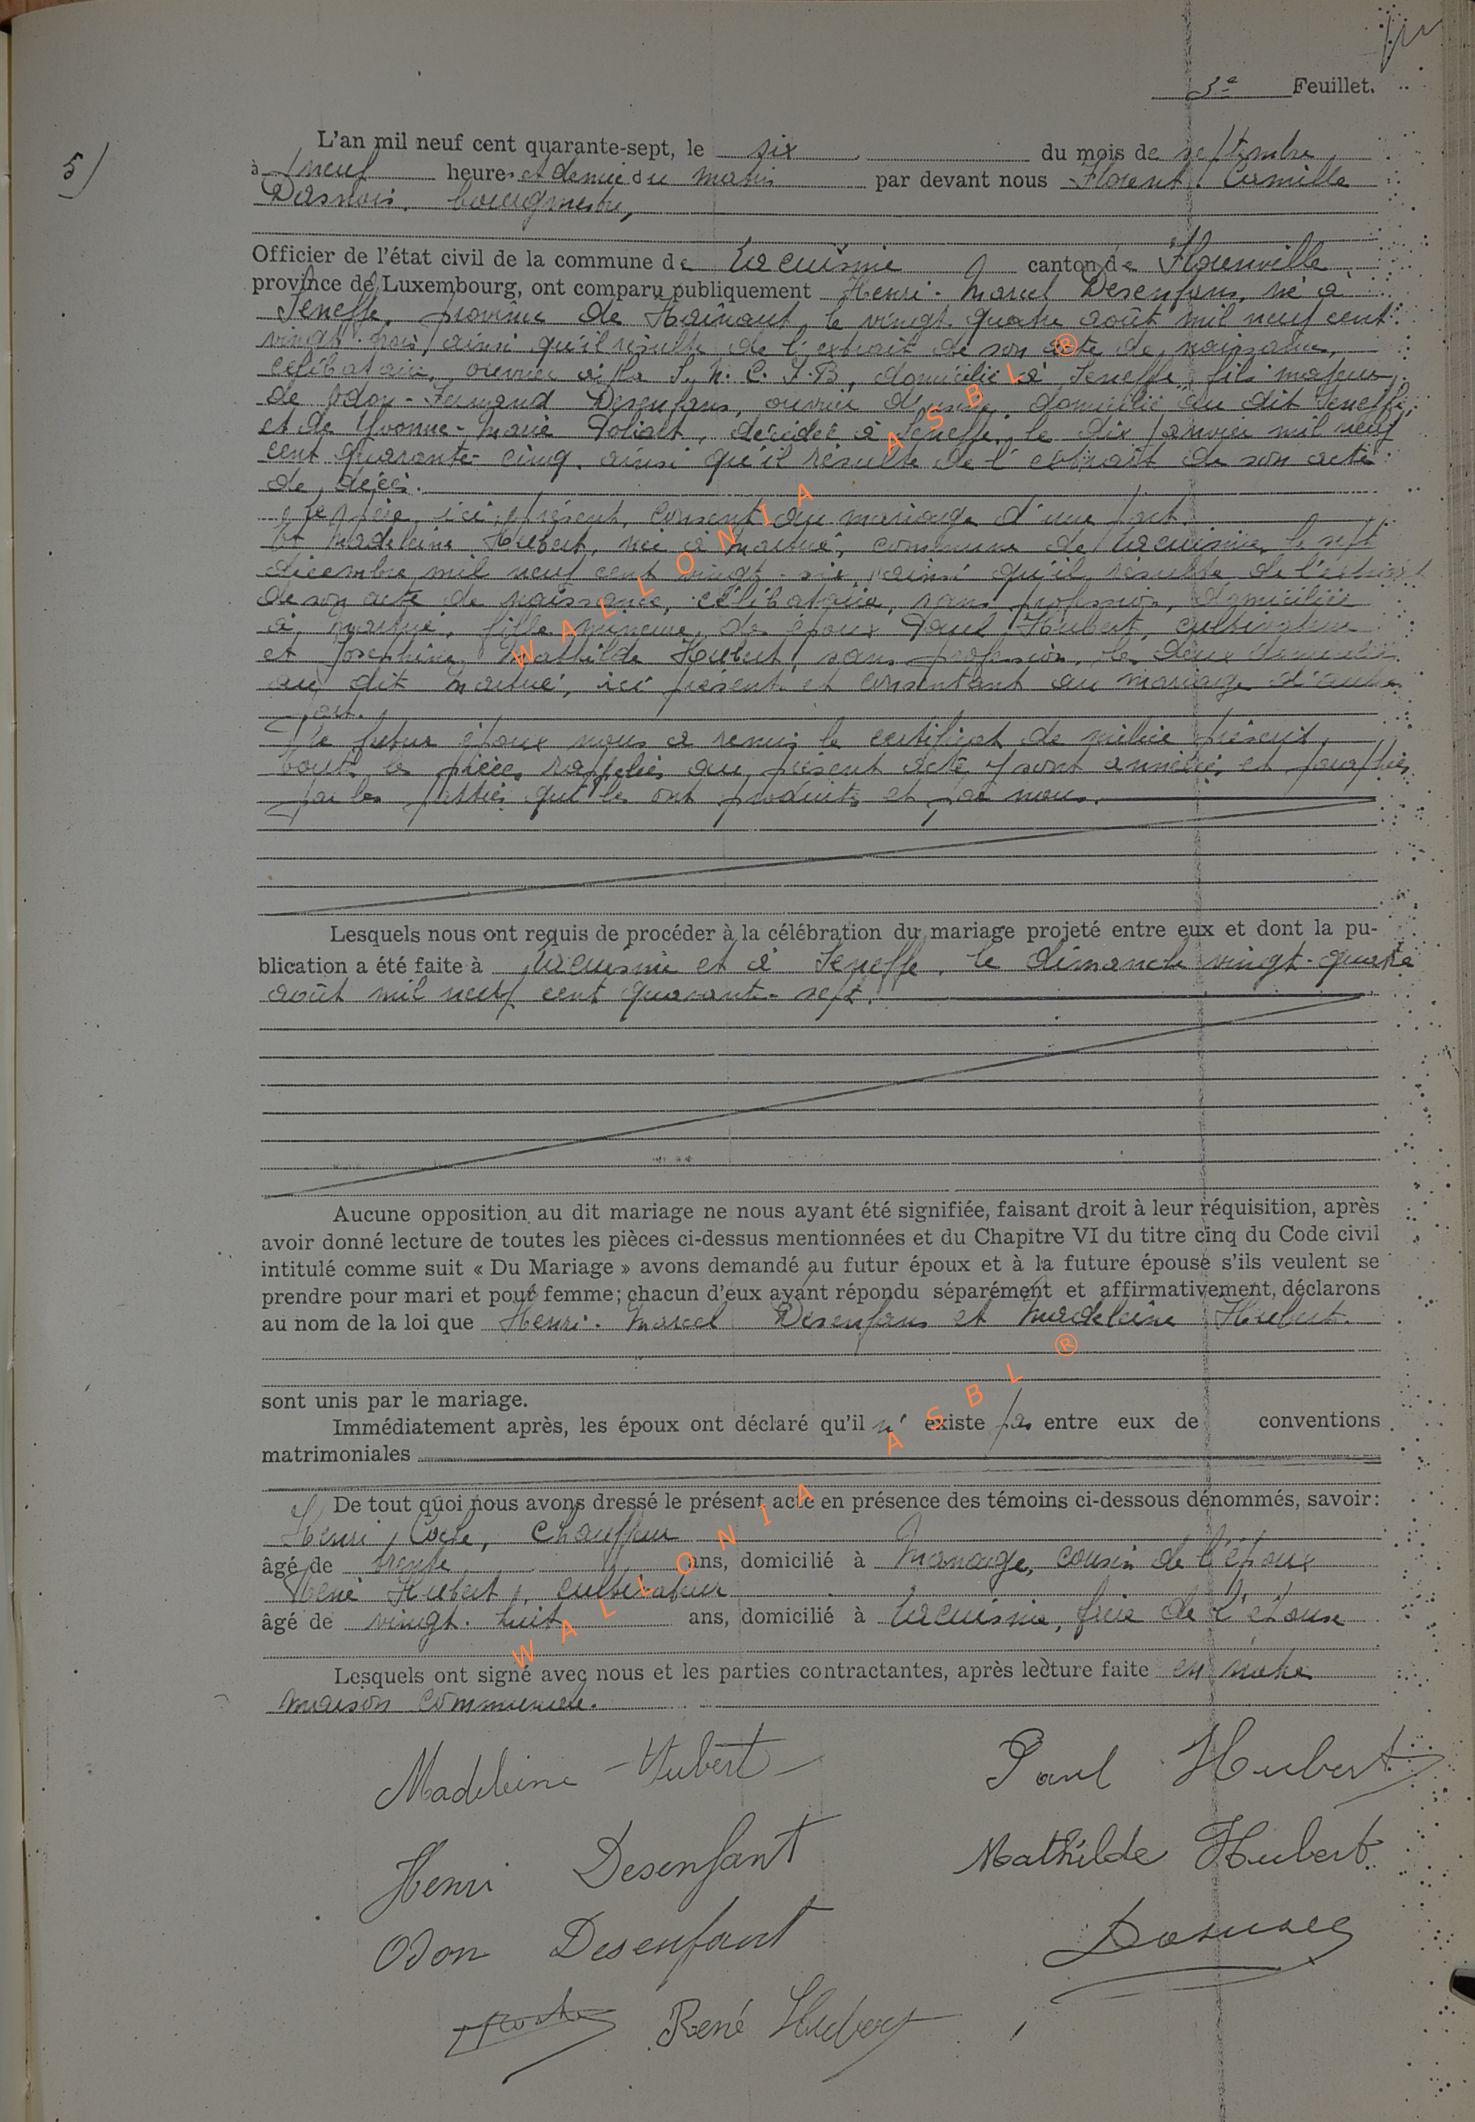 3e Feuillet.
5)
L'an mil neuf cent quarante-sept, le six du mois de septembre
à neuf heures et demie du matin par devant nous Florent Camille
Dasnois, bourgmestre,
Officier de l'état civil de la commune de Lacuisine canton de Florenville
province de Luxembourg, ont comparu publiquement Henri-Marcel Desenfans, né à
Seneffe, province de Hainaut, le vingt-quatre août mil neuf cent
vingt-trois, ainsi qu'il résulte de l'extrait de son acte de naissance,
célibataire, ouvrier à la S.N.C.F.B, domicilié à Seneffe, fils majeur
de Odon-Fernand Desenfans, ouvrier d'usine, domicilié au dit Seneffe,
et de Yvonne-Marie, décédée à Seneffe, le dix janvier mil neuf
cent quarante-cinq, ainsi qu'il résulte de l'extrait de son acte
de décès.
Le père, ici présent, consent au mariage d'une part.
Et Madeleine Hubert, née à Martué, commune de Lacuisine, le sept
décembre mil neuf cent vingt-six, ainsi qu'il résulte de l'extrait
de son acte de naissance, célibataire, sans profession, domiciliée
à Martué, fille mineure de époux Paul Hubert, cultivateur
et Joséphine Mathilde Hubert, sans profession, les deux domiciliés
au dit Martué, ici présent et consentant au mariage d'autre
part.
Le futur époux nous a remis le certificat de milice prescrit,
toutes les pièces rappelées au présent acte y sont annexées et paraphées
par les parties qui les ont produits et par nous.
Lesquels nous ont requis de procéder à la célébration du mariage projeté entre eux et dont la pu-
blication a été faite à Lacuisine et à Seneffe, le dimanche vingt-quatre
août mil neuf cent quarante-sept.
Aucune opposition au dit mariage ne nous ayant été signifiée, faisant droit à leur réquisition, après
avoir donné lecture de toutes les pièces ci-dessus mentionnées et du Chapitre VI du titre cinq du Code civil
intitulé comme suit « Du Mariage » avons demandé au futur époux et à la future épouse s'ils veulent se
prendre pour mari et pour femme; chacun d'eux ayant répondu séparément et affirmativement, déclarons
au nom de la loi que Henri-Marcel Desenfans et Madeleine Hubert.
sont unis par le mariage.
Immédiatement après, les époux ont déclaré qu'il n'existe pas entre eux de conventions
matrimoniales
De tout quoi nous avons dressé le présent acte en présence des témoins ci-dessous dénommés, savoir:
Henri, chauffeur
âgé de trente ans, domicilié à Manage, cousin de l'époux
René Hubert, cultivateur
âgé de vingt-huit ans, domicilié à Lacuisine, frère de l'épouse
Lesquels ont signé avec nous et les parties contractantes, après lecture faite en notre
maison communale.
Madeleine Hubert Paul Hubert
Henri Desenfant Mathilde Hubert
Odon Desenfant
René Hubert
WALLONIA ASBL ®
WALLONIA ASBL ®